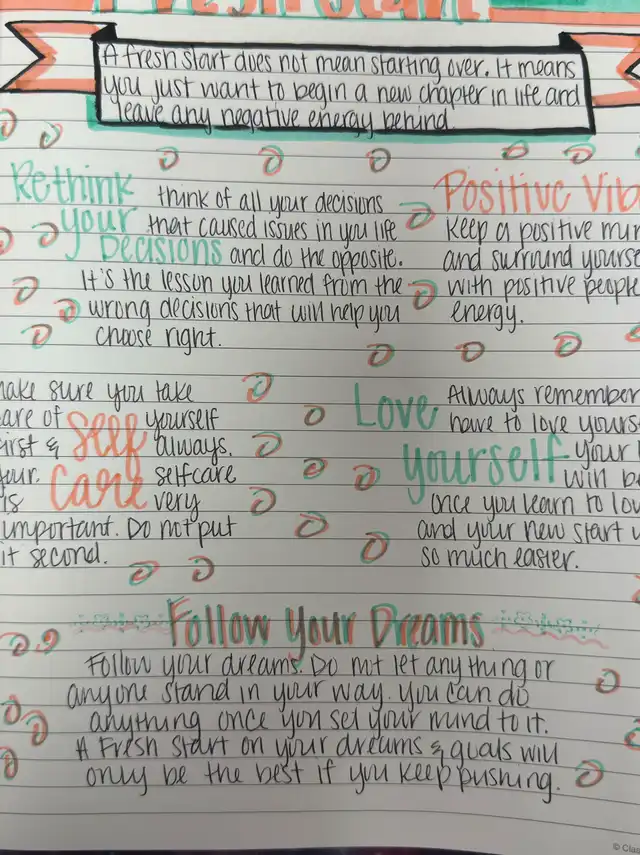 Fresh Start
A fresh start does not mean starting over. It means
you just want to begin a new chapter in life and
leave any negative energy behind.
Rethink
your
Decisions
think of all your decisions
that caused issues in you life
and do the opposite.
It's the lesson you learned from the
wrong decisions that will help you
choose right.
Positive Vib
Keep a positive
and surround yourse
with positive people
energy.
make sure you take
are of Self yourself
irst & always.
your Care selfcare
is very
important. Do not put
it second.
Love
yourself
Always remember
have to love yours
your
will b
once you learn to lov
and your new start
so much easier.
Follow Your Dreams
Follow your dreams. Do not let anything or
anyone stand in your way. You can do
anything once you set your mind to it.
A Fresh Start on your dreams & goals will
only be the best if you keep pushing.
© Clas